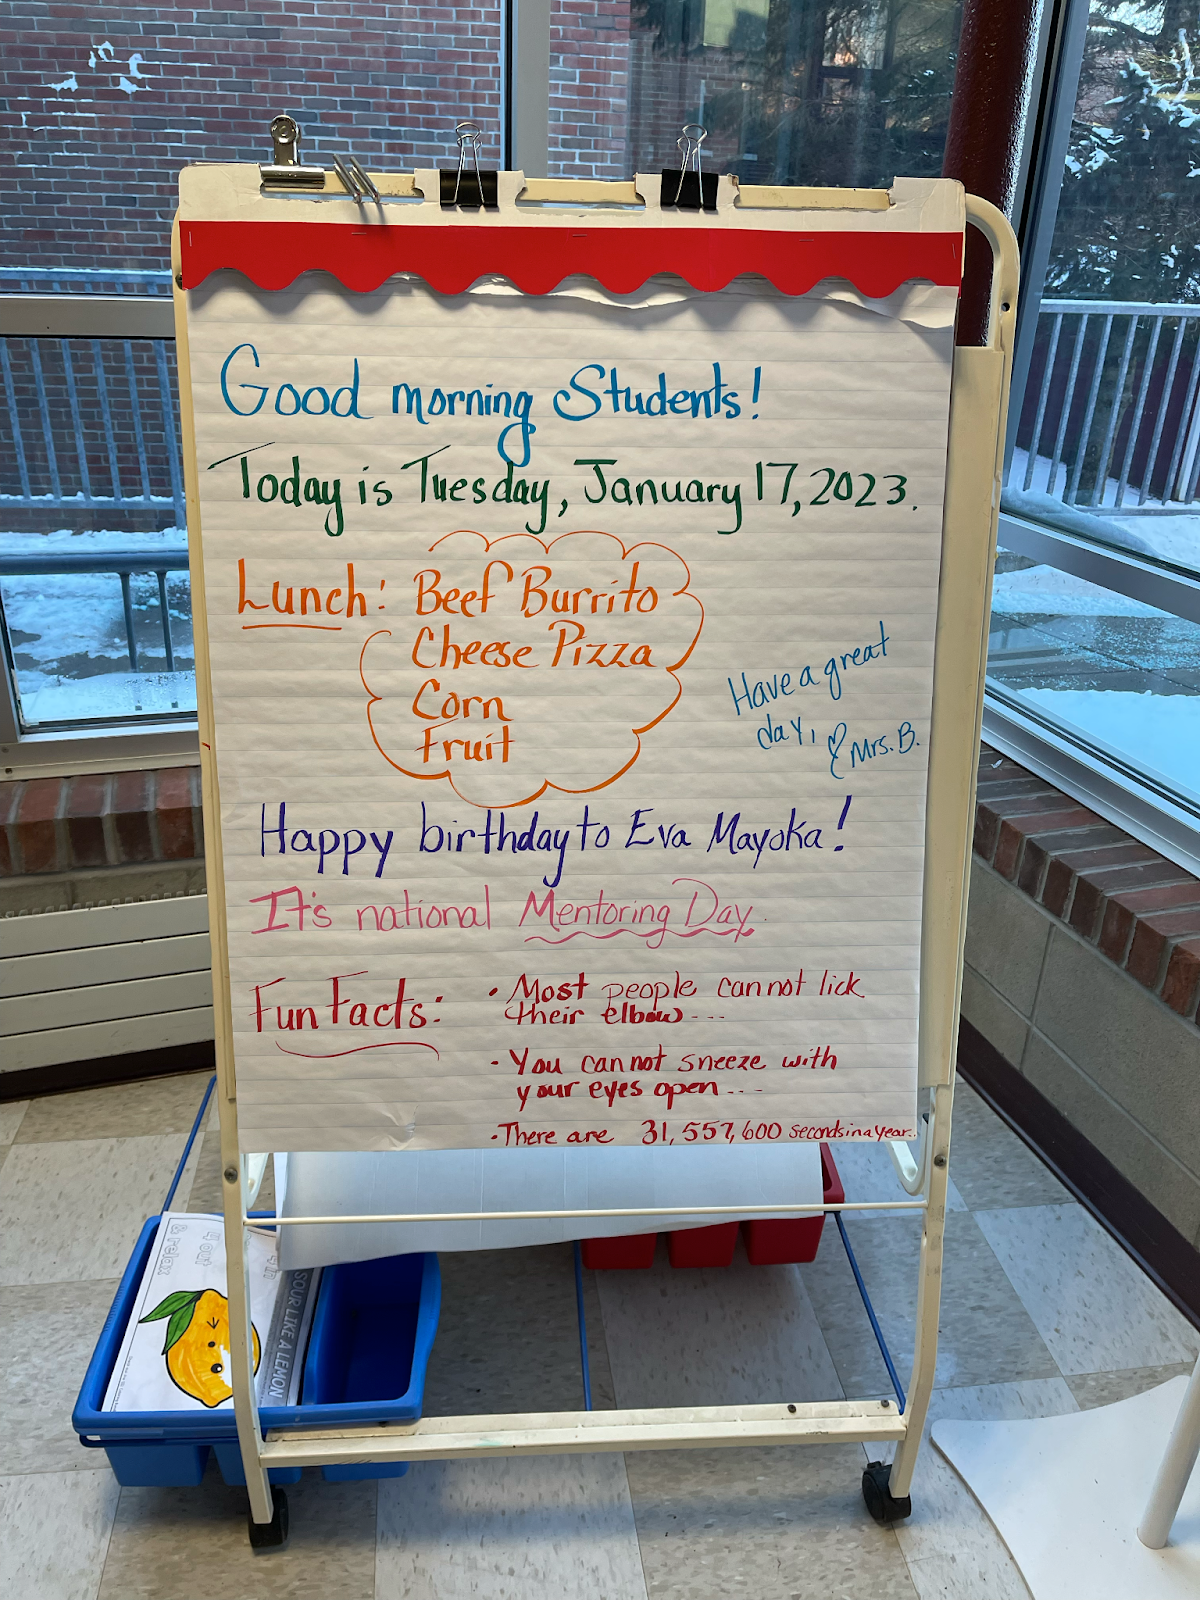 Good morning Students!
Today is Tuesday, January 17, 2023.
Lunch: Beef Burrito
Cheese Pizza
Corn
Fruit
Have a great
day,
Mrs. B.
Happy birthday to Eva Mayoka!
It's national Mentoring Day.
Fun Facts:
• Most people cannot lick
their elbow...
• You cannot sneeze with
your eyes open....
• There are 31,557,600 seconds in a year..
4 out
& relax
4 in
SOUR LIKE A LEMON